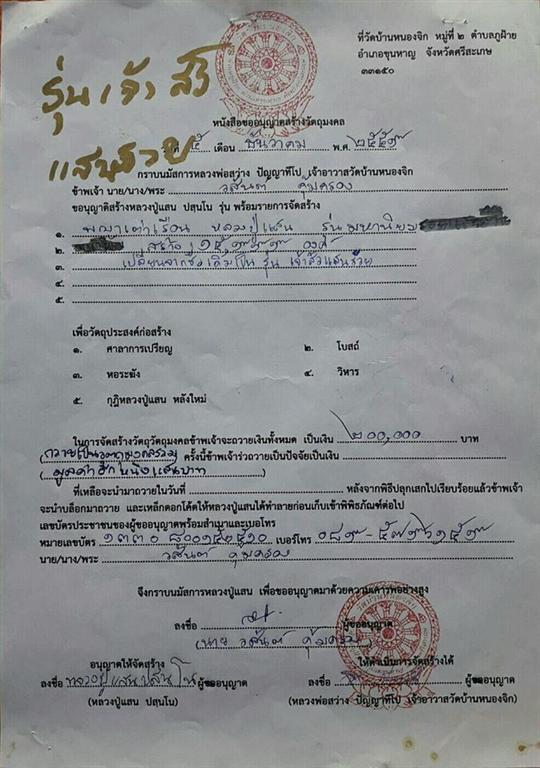 ที่วัดบ้านหนองจิก หมู่ที่ ๒ ตำบลภูฝ้าย
อำเภอขุนหาญ จังหวัดศรีสะเกษ
๓๓๑๕๐
รุ่น เจ้า สัว
แสนรวย
หนังสือขออนุญาตสร้างวัตถุมงคล
๕ เดือน ธันวาคม พ.ศ. ๒๕๕๙
กราบนมัสการหลวงพ่อสว่าง ปัญญาทีโป เจ้าอาวาสวัดบ้านหนองจิก
ข้าพเจ้า นาย/นาง/พระ วสันต์ คุ้มครอง
ขอนุญาติสร้างหลวงปู่แสน ปสฺนโน รุ่น พร้อมรายการจัดสร้าง
๑. พญาเต่าเรือน หลวงปู่แสน รุ่นมหานิยม
๒. สร้าง ๑๕,๙๙๙ องค์
๓. เปลี่ยนจากชื่อเดิมเป็น รุ่น เจ้าสัวแสนรวย
๔.
๕.
เพื่อวัตถุประสงค์ก่อสร้าง
๑. ศาลาการเปรียญ ๒. โบสถ์
๓. หอระฆัง ๔. วิหาร
๕. กุฏิหลวงปู่แสน หลังใหม่
ในการจัดสร้างวัตถุวัตถุมงคลข้าพเจ้าจะถวายเงินทั้งหมด เป็นเงิน ๒๐๐,๐๐๐ บาท
(ถวายเป็นวัตถุมงคลรวม) ครั้งนี้ข้าพเจ้าร่วถวายเป็นปัจจัยเป็นเงิน
(มูลค่าอีกหนึ่งแสนบาท)
ที่เหลือจะนำมาถวายในวันที่ หลังจากพิธีปลุกเสกไปเรียบร้อยแล้วข้าพเจ้า
จะนำบล็อกมาถวาย และเหล็กตอกโค้ดให้หลวงปู่แสนได้ทำลายก่อนเก็บเข้าพิพิธภัณฑ์ต่อไป
เลขบัตรประชาชนของผู้ขออนุญาตพร้อมสำเนาและเบอโทร
หมายเลขบัตร เบอร์โทร
นาย/นาง/พระ วสันต์ คุ้มครอง
จึงกราบนมัสการหลวงปู่แสน เพื่อขออนุญาตมาด้วยความเคารพอย่างสูง
ลงชื่อ ผู้ขออนุญาต
(นาย วสันต์ คุ้มครอง)
อนุญาตให้จัดสร้าง ให้ดำเนินการจัดสร้างได้
ลงชื่อ หลวงปู่แสน ปสนฺโน ผู้ขออนุญาต ลงชื่อ ผู้ขออนุญาต
(หลวงปู่แสน ปสนฺโน) (หลวงพ่อสว่าง ปัญญาทีโป เจ้าอาวาสวัดบ้านหนองจิก)